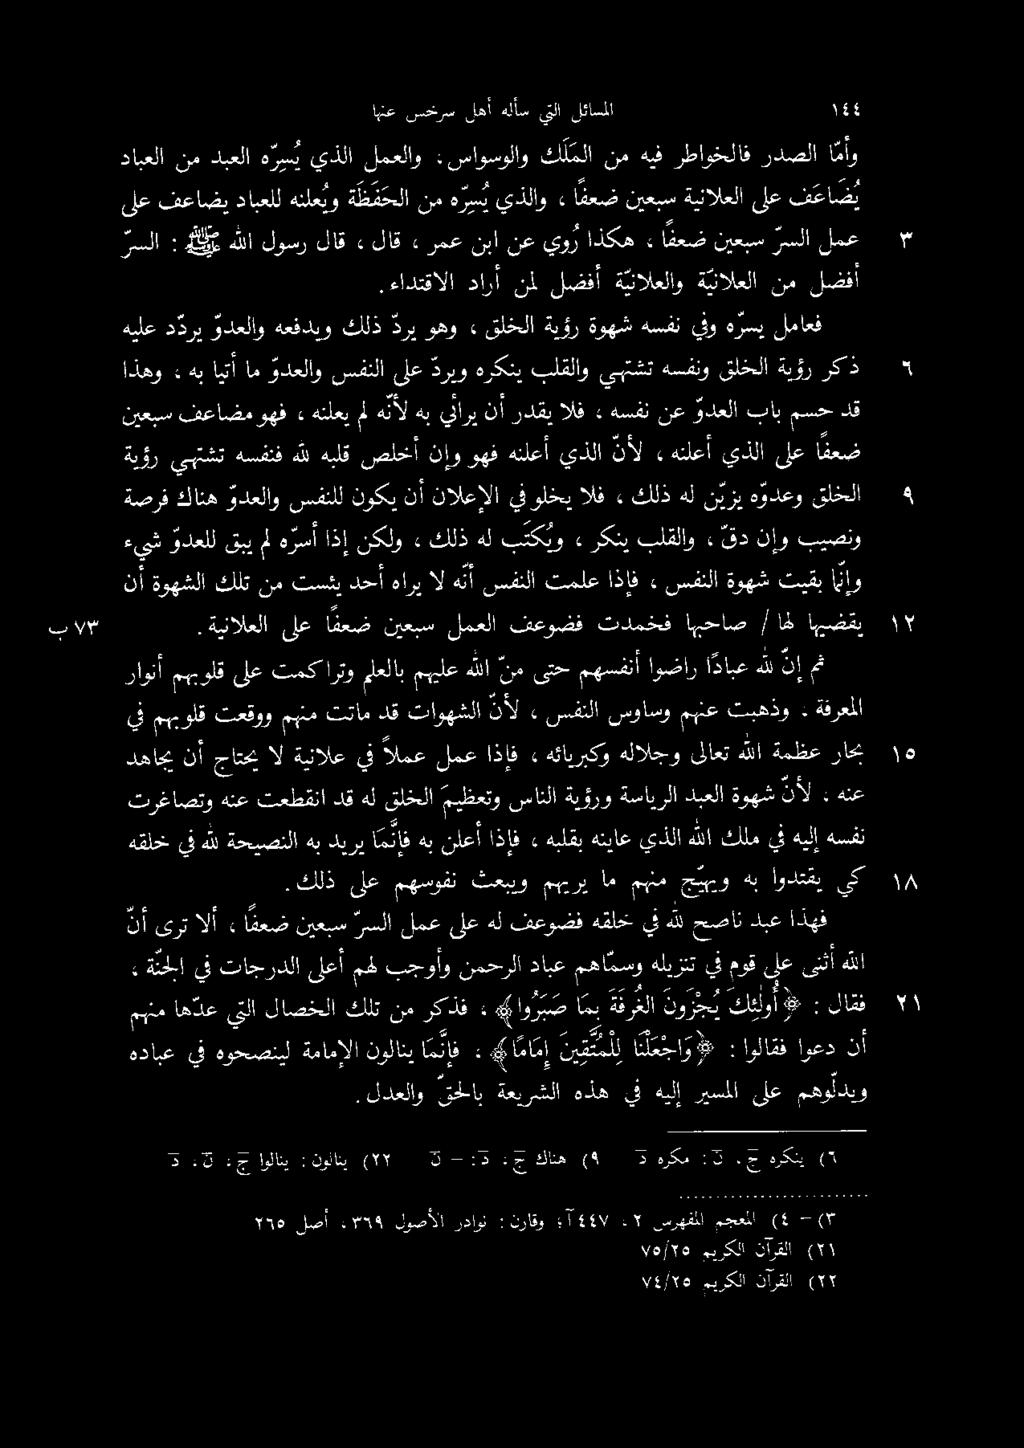 ١٤٤ المسائل التي سأله أهل سرخس عنها
وأمّا الصدر فالخواطر فيه من المَلَك والوسواس، والعمل الذي يُسِرّه العبد من العباد
يُضَاعَف على العلانية سبعين ضعفًا، والذي يُسِرّه من الحَفَظَة ويُعلنه للعباد يضاعف على
٣ عمل السرّ سبعين ضعفًا، هكذا رُوي عن ابن عمر، قال، قال رسول الله ﷺ: السرّ
أفضل من العلانيّة والعلانيّة أفضل لمن أراد الاقتداء.
فعامل يسرّه وفي نفسه شهوة رؤية الخلق، وهو يردّ ذلك ويدفعه والعدوّ يردّد عليه
٦ ذكر رؤية الخلق ونفسه تشتهي والقلب ينكره ويردّ على النفس والعدوّ ما أتيا به، وهذا
قد حسم باب العدوّ عن نفسه، فلا يقدر أن يرأيي به لأنّه لم يعلنه، فهو مضاعف سبعين
ضعفًا على الذي أعلنه، لأنّ الذي أعلنه فهو وإن أخلص قلبه لله فنفسه تشتهي رؤية
٩ الخلق وعدوّه يزيّن له ذلك، فلا يخلو في الإعلان أن يكون للنفس والعدوّ هناك فرصة
ونصيب وإن دقّ، والقلب ينكر، ويُكتَب له ذلك، ولكن إذا أسرّه لم يبق للعدوّ شيء
وإنّما بقيت شهوة النفس، فإذا علمت النفس أنّه لا يراه أحد يئست من تلك الشهوة أن
١٢ يقضيها لها / صاحبها فخمدت فضوعف العمل سبعين ضعفًا على العلانية. ٧٣ ب
ثم إنّ لله عبادًا راضوا أنفسهم حتى منّ الله عليهم بالعلم وتراكمت على قلوبهم أنوار
المعرفة. وذهبت عنهم وساوس النفس، لأنّ الشهوات قد ماتت منهم ووقعت قلوبهم في
١٥ بحار عظمة الله تعالى وجلاله وكبريائه، فإذا عمل عملاً في علانية لا يحتاج أن يجاهد
عنه، لأنّ شهوة العبد الرياسة ورؤية الناس وتعظيمَ الخلق له قد انقطعت عنه وتصاغرت
نفسه إليه في ملك الله الذي عاينه بقلبه، فإذا أعلن به فإنّمَا يريد به النصيحة لله في خلقه
١٨ كي يقتدوا به ويهيّج منهم ما يريهم ويبعث نفوسهم على ذلك.
فهذا عبد ناصح لله في خلقه فضوعف له على عمل السرّ سبعين ضعفًا، ألا ترى أنّ
الله أثنى على قوم في تنزيله وسمّاهم عباد الرحمن وأوجب لهم أعلى الدرجات في الجنّة،
٢١ فقال: ﴿أُولَٰئِكَ يُجْزَونَ الغُرفَةَ بِمَا صَبَرُوا﴾، فذكر من تلك الخصال التي عدّها منهم
أن دعوا فقالوا: ﴿وَاجْعَلْنَا لِلْمُتَّقِينَ إِمَامًا﴾، فإنّمَا ينالون الإمامة لينصحوه في عباده
ويدلّوهم على المسير إليه في هذه الشريعة بالحقّ والعدل.
٦) ينكره ج، ن: مكره د ٩) هناك ج، د: – ن ٢٢) ينالون: ينالوا ج، ن، د
٣) – ٤) المعجم المفهرس ٢، ٤٤٧ آ؛ وقارن: نوادر الأصول ٣٦٩، أصل ٢٦٥
٢١) القرآن الكريم ٧٥/٢٥
٢٢) القرآن الكريم ٧٤/٢٥